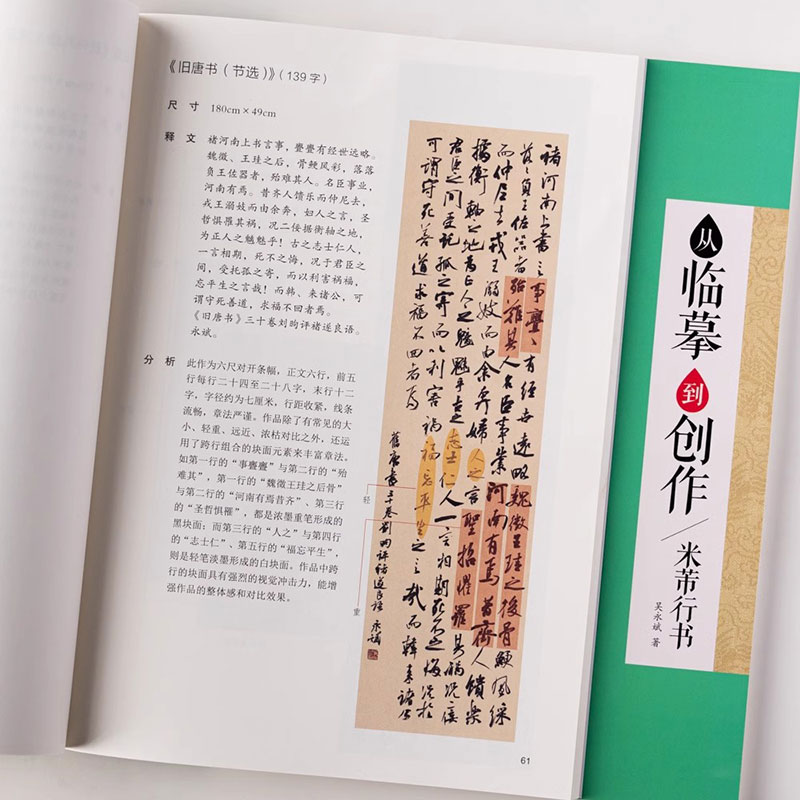 《旧唐书（节选）》（139字）
尺 寸 180cm×49cm
释 文 褚河南上书言事，亹亹有经世远略。
魏徵、王珪之后，骨鲠风彩，落落
负王佐器者，殆难其人。名臣事业，
河南有焉。昔齐人馈乐而仲尼去，
戎王溺妓而由余奔，妇人之言，圣
哲惧罹其祸，况二佞据衡轴之地，
为正人之魑魅乎！古之志士仁人，
一言相期，死不之悔，况于君臣之
间，受托孤之寄，而以利害祸福，
忘平生之言哉！而韩、来诸公，可
谓守死善道，求福不回者焉。
《旧唐书》三十卷刘昫评褚遂良语。
永斌。
分 析 此作为六尺对开条幅，正文六行，前五
行每行二十四至二十八字，末行十二
字，字径约为七厘米，行距收紧，线条
流畅，章法严谨。作品除了有常见的大
小、轻重、远近、浓枯对比之外，还运
用了跨行组合的块面元素来丰富章法。
如第一行的“事亹亹”与第二行的“殆
难其”，第一行的“魏徵王珪之后骨”
与第二行的“河南有焉昔齐”、第三行
的“圣哲惧罹”，都是浓墨重笔形成的
黑块面；而第三行的“人之”与第四行
的“志士仁”、第五行的“福忘平生”，
则是轻笔淡墨形成的白块面。作品中跨
行的块面具有强烈的视觉冲击力，能增
强作品的整体感和对比效果。
褚河南上書言事亹〻有經世遠略魏徵王珪之後骨鯁風採
落〻負王佐器者殆難其人名臣事業河南有焉昔齊人饋樂
而仲尼去戎王溺妓而由余奔婦人之言聖哲懼罹其禍况二佞
據衡軸之地為正人之魑魅乎古之志士仁人一言相期死不之悔况於
君臣之間受託孤之寄而以利害禍福忘平生之言哉而韓來諸公
可謂守死善道求福不回者焉
舊唐書三十卷劉昫評褚遂良語 永斌
轻
重
61
从临摹到创作／米芾行书
吴永斌 著